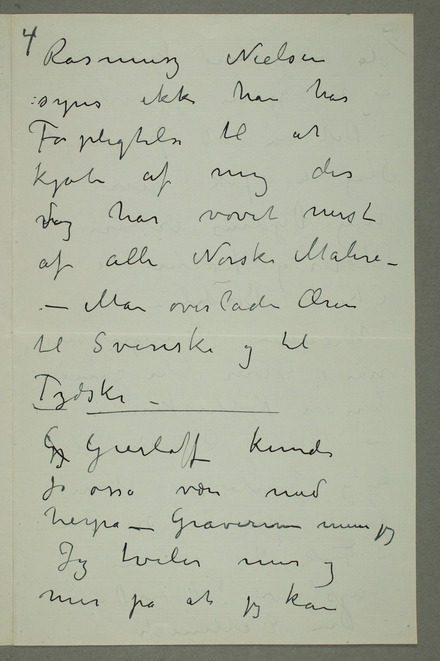 4
Rasmus Nielsen
synes ikke han har
Forpligtelse til at
kjøbe af mig der
Jeg har vovet mest
af alle Norske Malere –
– Man overlader Æren
til Svenske og til
Tydske –
Gierløff kunde
jo også være med
herpå – Graveren mener jeg
Jeg tviler mer og
mer på at jeg kan